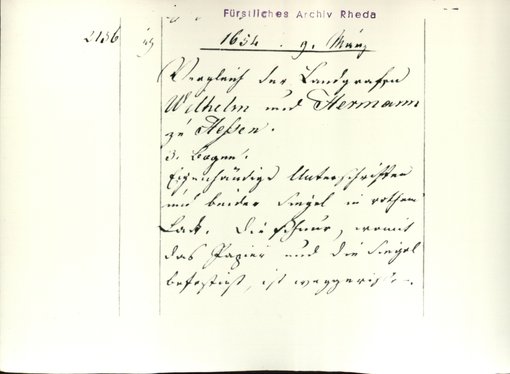 Fürstliches Archiv Rheda
2136
1654. 9. März
Vergleich der Landgrafen
Wilhelm und Hermann
zu Hessen.
3. Bogen.
Eigenhändige Unterschriften
und beider Siegel in rothem
Lack. Die Schnur, womit
das Papier und die Siegel
befestigt, ist weggerissen.